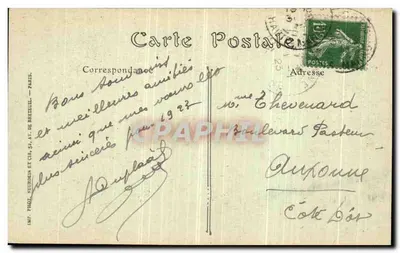 Carte Postale
Correspondance
Adresse
Bons souvenirs
et meilleures amitiés
ainsi que mes vœux les
plus sincères pour 1927
Mme Thevenard
Boulevard Pasteur
Auxonne
Côte d'Or
POSTES